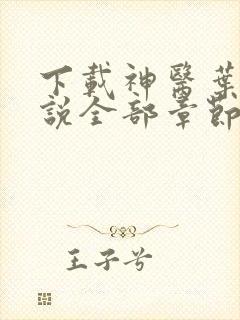 下載神醫葉
說全部章節
王子兮